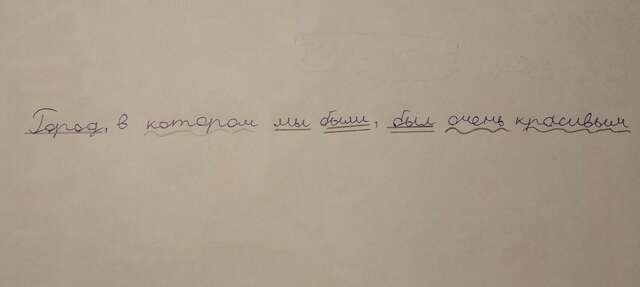 Город, в котором мы были, был очень красивым